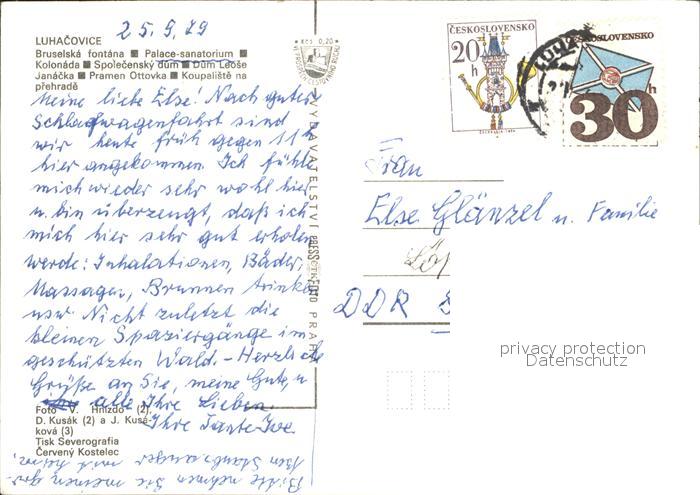 25.9.79
LUHAČOVICE
Bruselská fontána ■ Palace-sanatorium ■
Kolonáda ■ Společenský dům ■ Dům Leoše
Janáčka ■ Pramen Ottovka ■ Koupaliště na
přehradě
Meine liebe Else! Nach guter
Schlafwagenfahrt sind
wir heute früh gegen 11 h
hier angekommen. Ich fühle
mich wieder sehr wohl hier
u. bin überzeugt, daß ich
mich hier sehr gut erholen
werde: Inhalationen, Bäder,
Massagen, Brunnen trinken
usw. Nicht zuletzt die
kleinen Spaziergänge im
geschützten Wald. - Herzliche
Grüße an Sie, meine Gute, u
alle Ihre Lieben.
Ihre Tante Ive
Foto V. Hnízdo (2),
D. Kusák (2) a J. Kusá-
ková (3)
Tisk Severografia
Červený Kostelec
Bitte nehmen Sie meinen
Kčs 0,20
VYDAVATELSTVÍ PRESSFOTO PRAHA
ČESKOSLOVENSKO
20 h
ČESKOSLOVENSKO
30 h
Frau
Else Glänzel u. Familie
DDR
privacy protection
Datenschutz